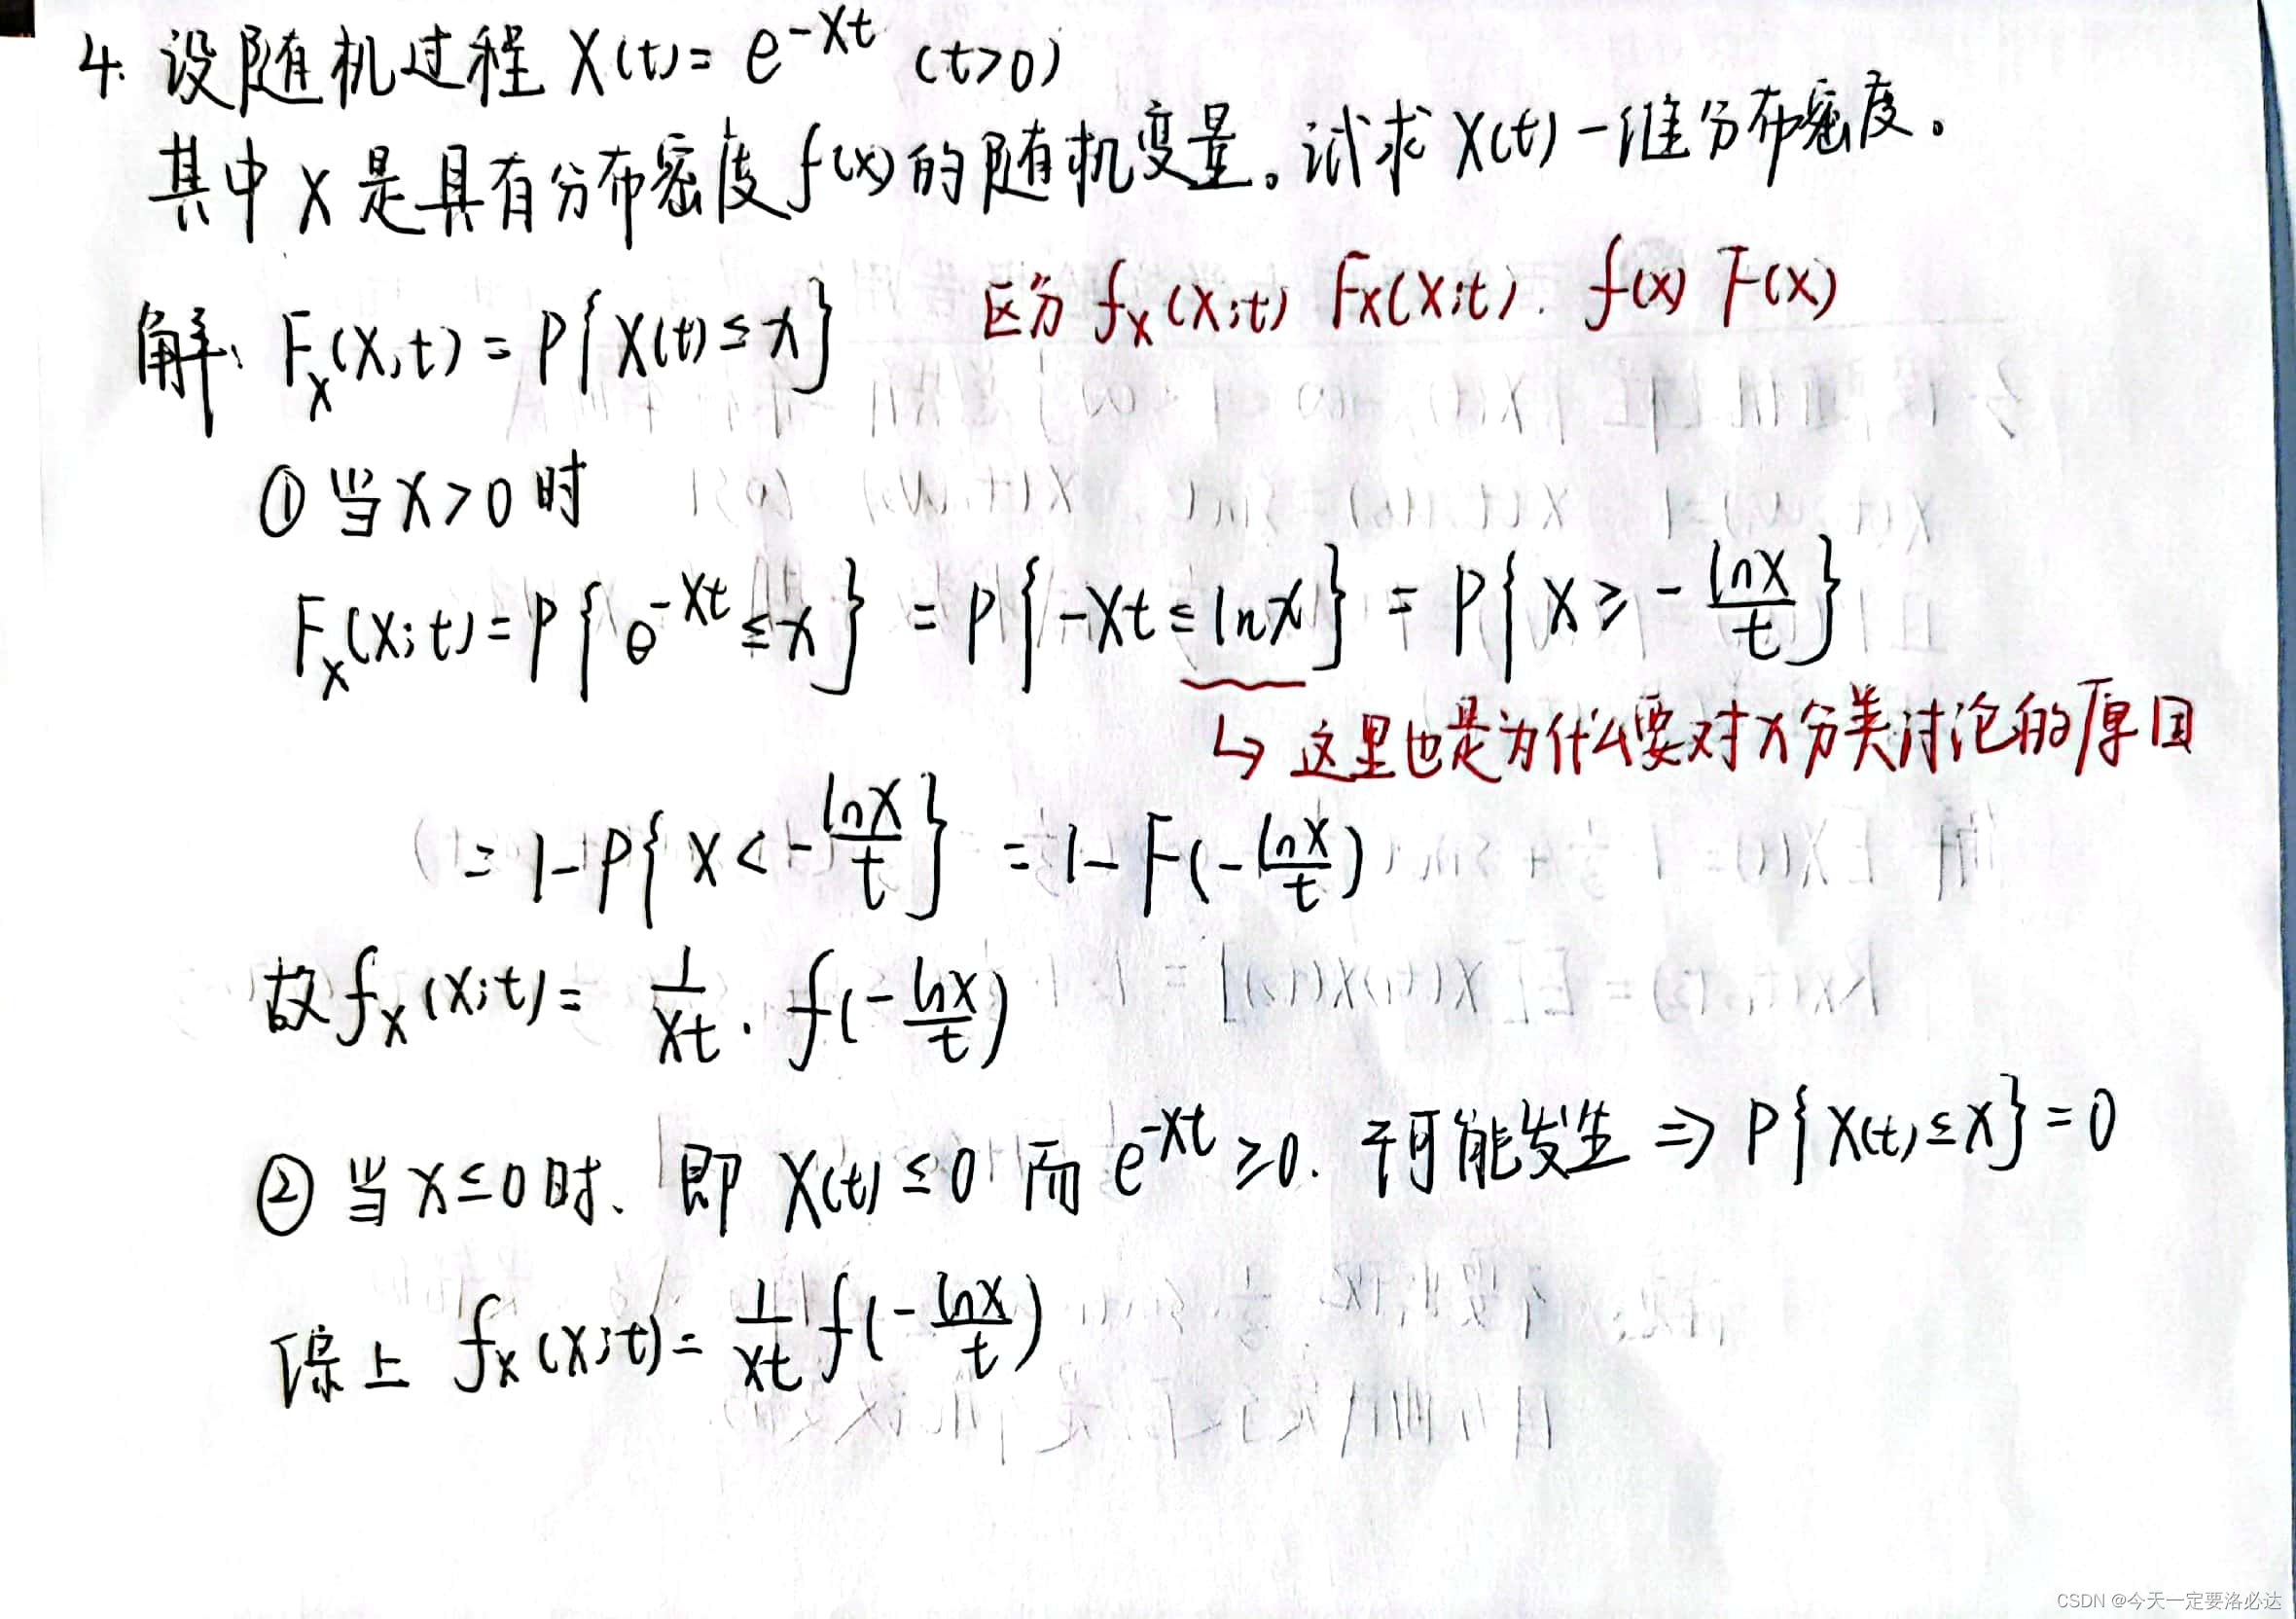 4. 设随机过程 X(t)= e^{-Xt} (t>0)
其中 X 是具有分布密度 f(x) 的随机变量。试求 X(t) 一维分布密度。
区分 f_X(x;t) F_X(x;t). f(x) F(x)
解: F_X(x,t) = P{X(t)≤x}
① 当 x>0 时
F_X(x;t)=P{e^{-Xt}≤x} = P{-Xt≤lnx} = P{X≥-\frac{lnx}{t}}
↳ 这里也是为什么要对x分类讨论的原因
= 1-P{X<-\frac{lnx}{t}} = 1-F(-\frac{lnx}{t})
故 f_X(x;t)= \frac{1}{xt}·f(-\frac{lnx}{t})
② 当 x≤0 时、即 X(t)≤0 而 e^{-Xt}≥0. 不可能发生 ⇒ P{X(t)≤x}=0
综上 f_X(x;t)= \frac{1}{xt} f(-\frac{lnx}{t})
CSDN @今天一定要洛必达